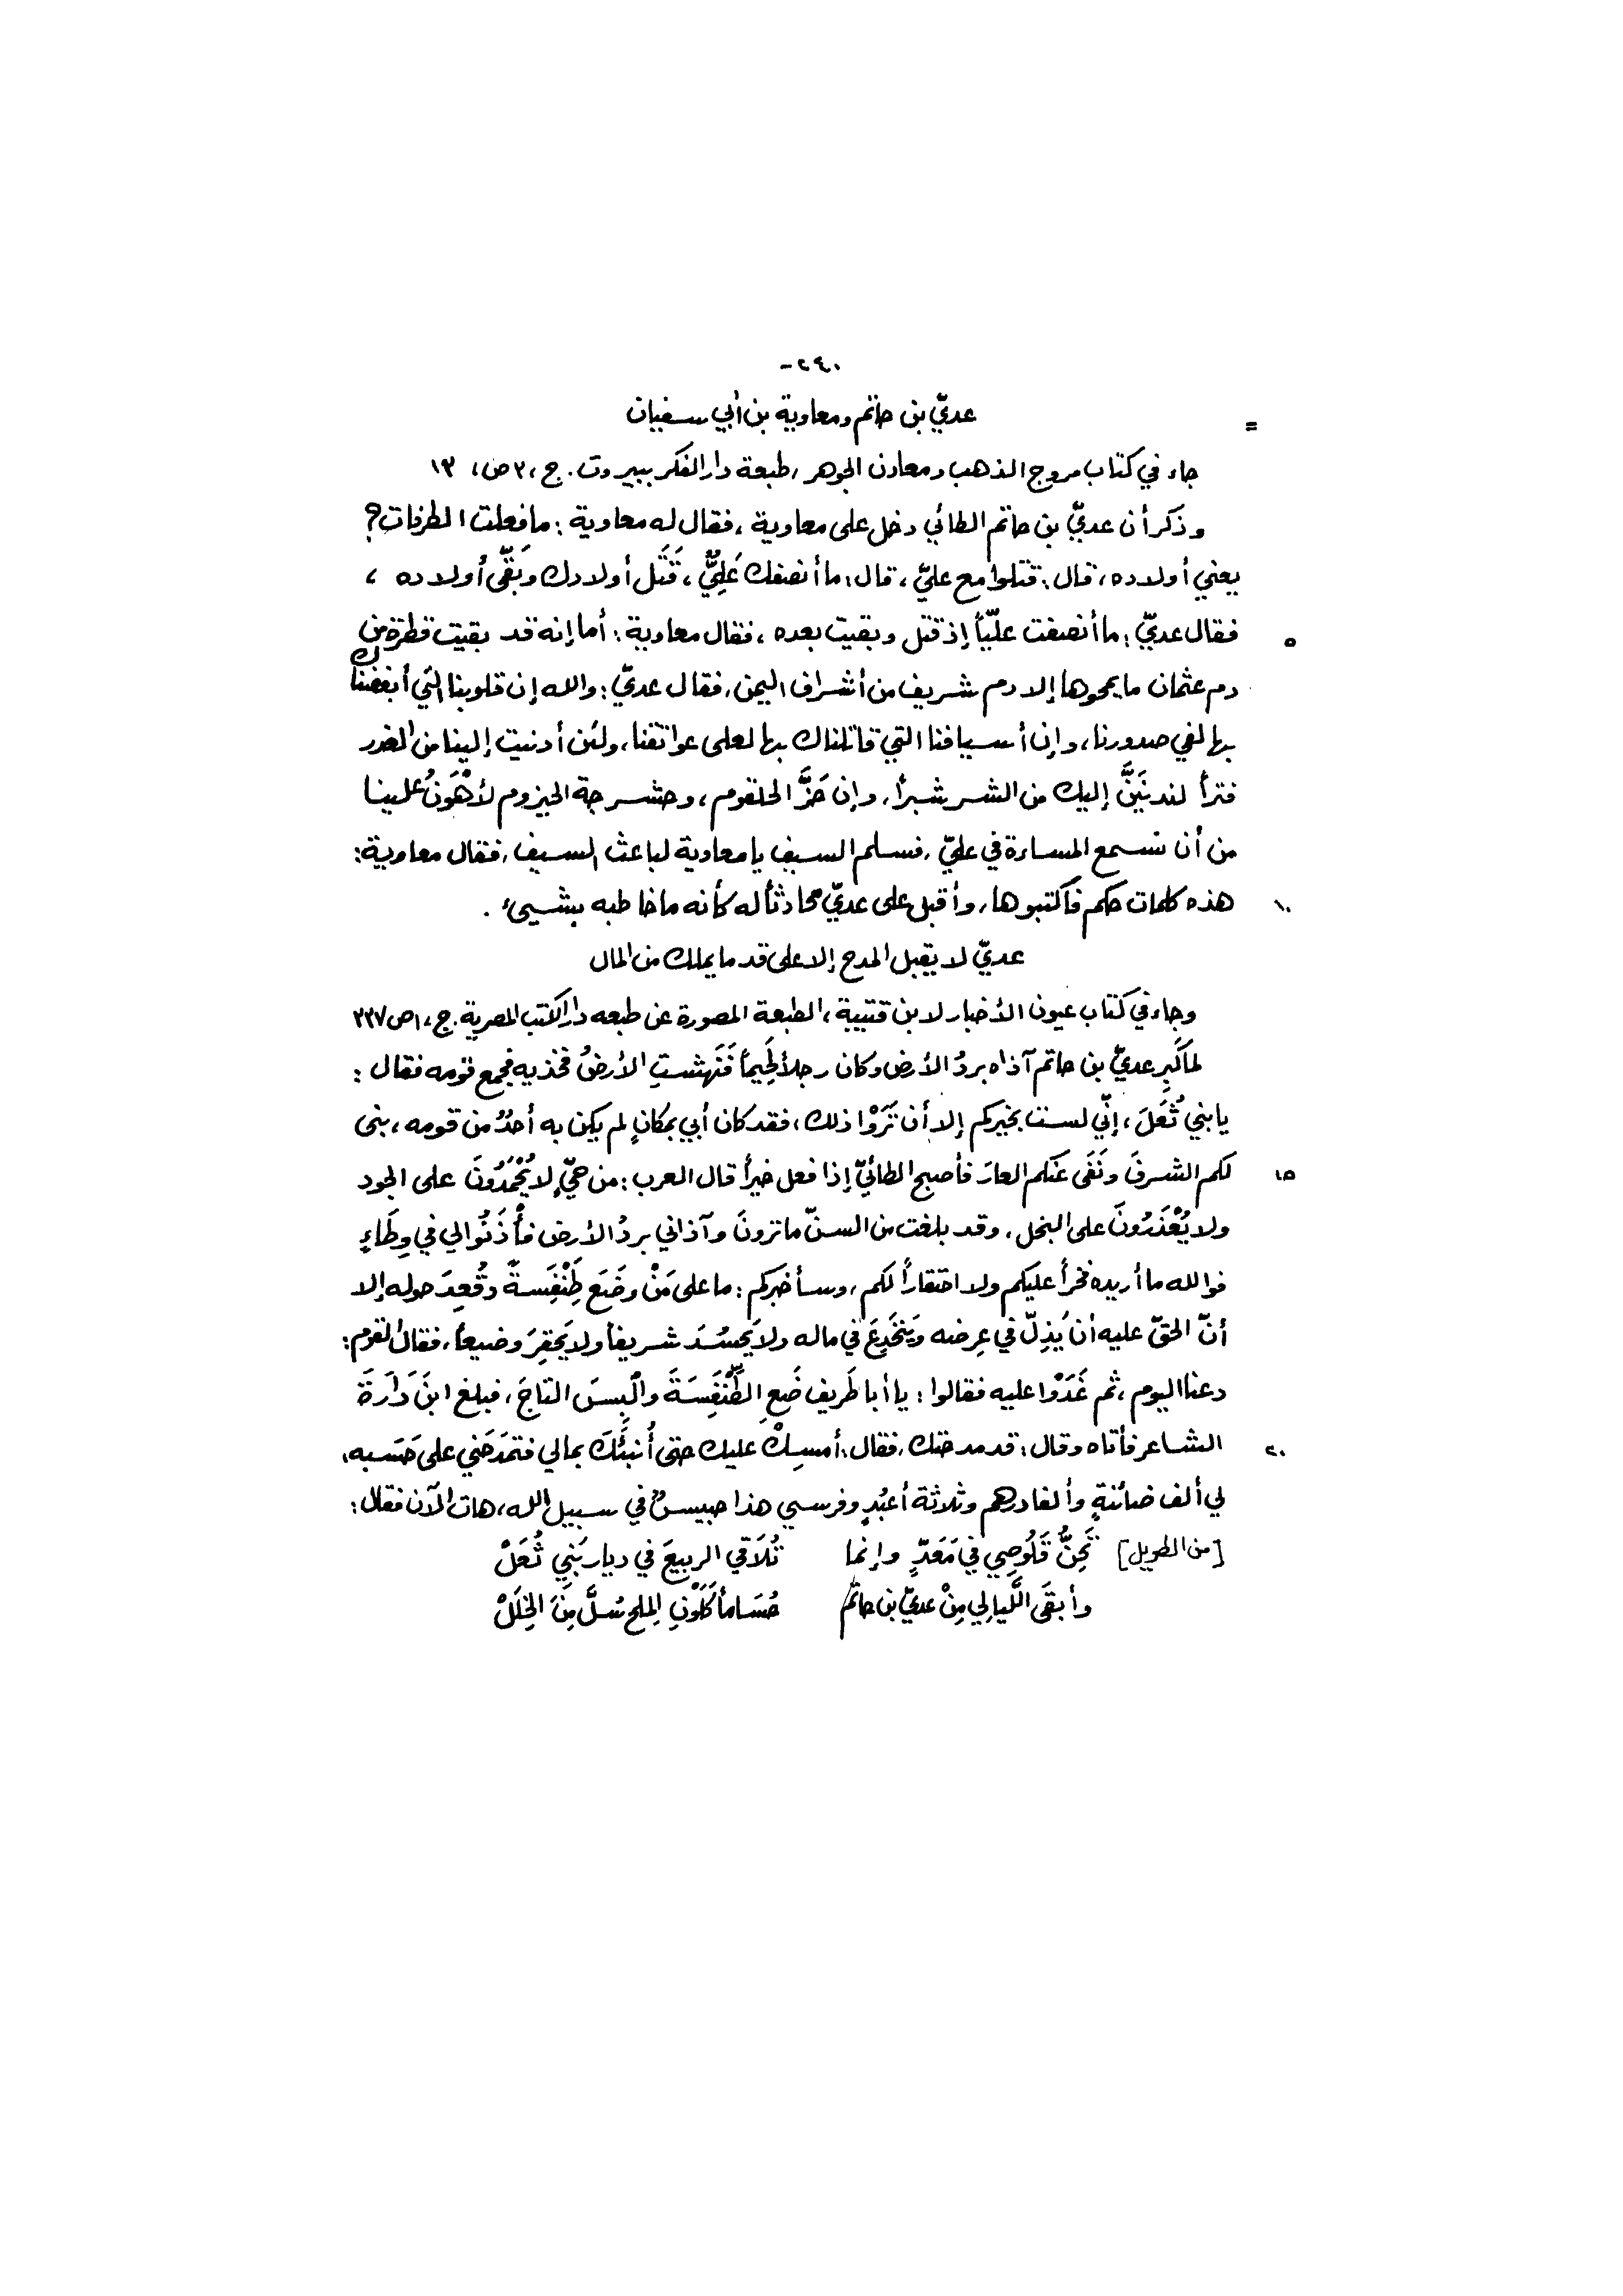 -٢٤٠
عديّ بن حاتم ومعاوية بن أبي سفيان
=
جاء في كتاب مروج الذهب ومعادن الجوهر، طبعة دار الفكر ببيروت. ج،٣ ص، ١٣
وذكر أن عديّ بن حاتم الطائي دخل على معاوية، فقال له معاوية: ما فعلت الطرفات؟
يعني أولاده، قال: قتلوا مع عليّ، قال: ما أنصفك عَلِيٌّ، قَتَل أولادك وبَقَّى أولاده،
فقال عديّ: ما أنصفت عليّاً إذ قتل وبقيت بعده، فقال معاوية: أما إنه قد بقيت قطرة من
٥
دم عثمان ما يمحوها إلا دم شريف من أشراف اليمن، فقال عديّ: والله إن قلوبنا التي أبغضناك
بها لفي صدورنا، وإن أسيافنا التي قاتلناك بها لعلى عواتقنا، ولئن أدنيت إلينا من الغدر
فتراً لندنيَنَّ إليك من الشر شبراً، وإن حَزَّ الحلقوم، وحشرجة الحيزوم لأهْوَنُ علينا
من أن نسمع المساءة في عليّ، فسلم السيف يا معاوية لباعث السيف، فقال معاوية:
هذه كلمات حكم فاكتبوها، وأقبل على عديّ محادثاً له كأنه ما خاطبه بشيئ.
١٠
عديّ لا يقبل المدح إلا على قد ما يملك من المال
وجاء في كتاب عيون الأخبار لابن قتيبة، الطبعة المصورة عن طبعه دار الكتب المصرية. ج،١ص ٣٣٧
لما كَبِر عديّ بن حاتم آذاه بردُ الأرض وكان رجلاً لَحِيماً فَنَهشتِ الأرضُ فخذيه فجمع قومه فقال:
يا بني ثُعَلَ، إنّي لست بخيركم إلا أن تَرَوْا ذلك، فقد كان أبي بمكانٍ لم يكن به أحدٌ من قومه، بنى
لكم الشرفَ ونَفَى عنكم العارَ فأصبح الطائيّ إذا فعل خيراً قال العرب: من حيٍّ لا يُحْمَدُونَ على الجود
١٥
ولا يُعْذَرُونَ على البخل، وقد بلغت من السنّ ما ترونَ وآذاني بردُ الأرض فأْذَنُوا لي في وِطَاءٍ
فوالله ما أريده فخراً عليكم ولا احتقاراً لكم، وسأخبركم: ما على مَنْ وضَعَ طِنْفِسةً وقُعِدَ حوله إلا
أنّ الحقّ عليه أن يُذِلّ في عِرضه ويَنخَدِعَ في ماله ولا يَحسُدَ شريفاً ولا يَحقِرَ وضيعاً، فقال القوم:
دعنا اليوم، ثم غَدَوْا عليه فقالوا: يا أبا طَريف ضَعِ الطِّنْفِسَةَ والْبِسَ التاجَ، فبلغ ابنَ دَارَةَ
الشاعر فأتاه وقال: قد مدحتك، فقال: أمسِكْ عليك حتى أُنبئَّكَ بمالي فتمدَحَني على حَسَبه،
٢٠
لي ألف ضائنةٍ وألفا درهم وثلاثة أعبُدٍ وفرسي هذا حبيسٌ في سبيل الله، هات الآن فقال:
[من الطويل] تَحِنُّ قَلُوصِي في مَعَدٍّ وإنما تُلَاقي الربيعَ في ديار بَنِي ثُعَلْ
وأبقَى اللَّيالِي مِنْ عديّ بن حاتم حُسَاماً كَلَوْنِ المِلح سُلَّ مِنَ الخِلَلْ